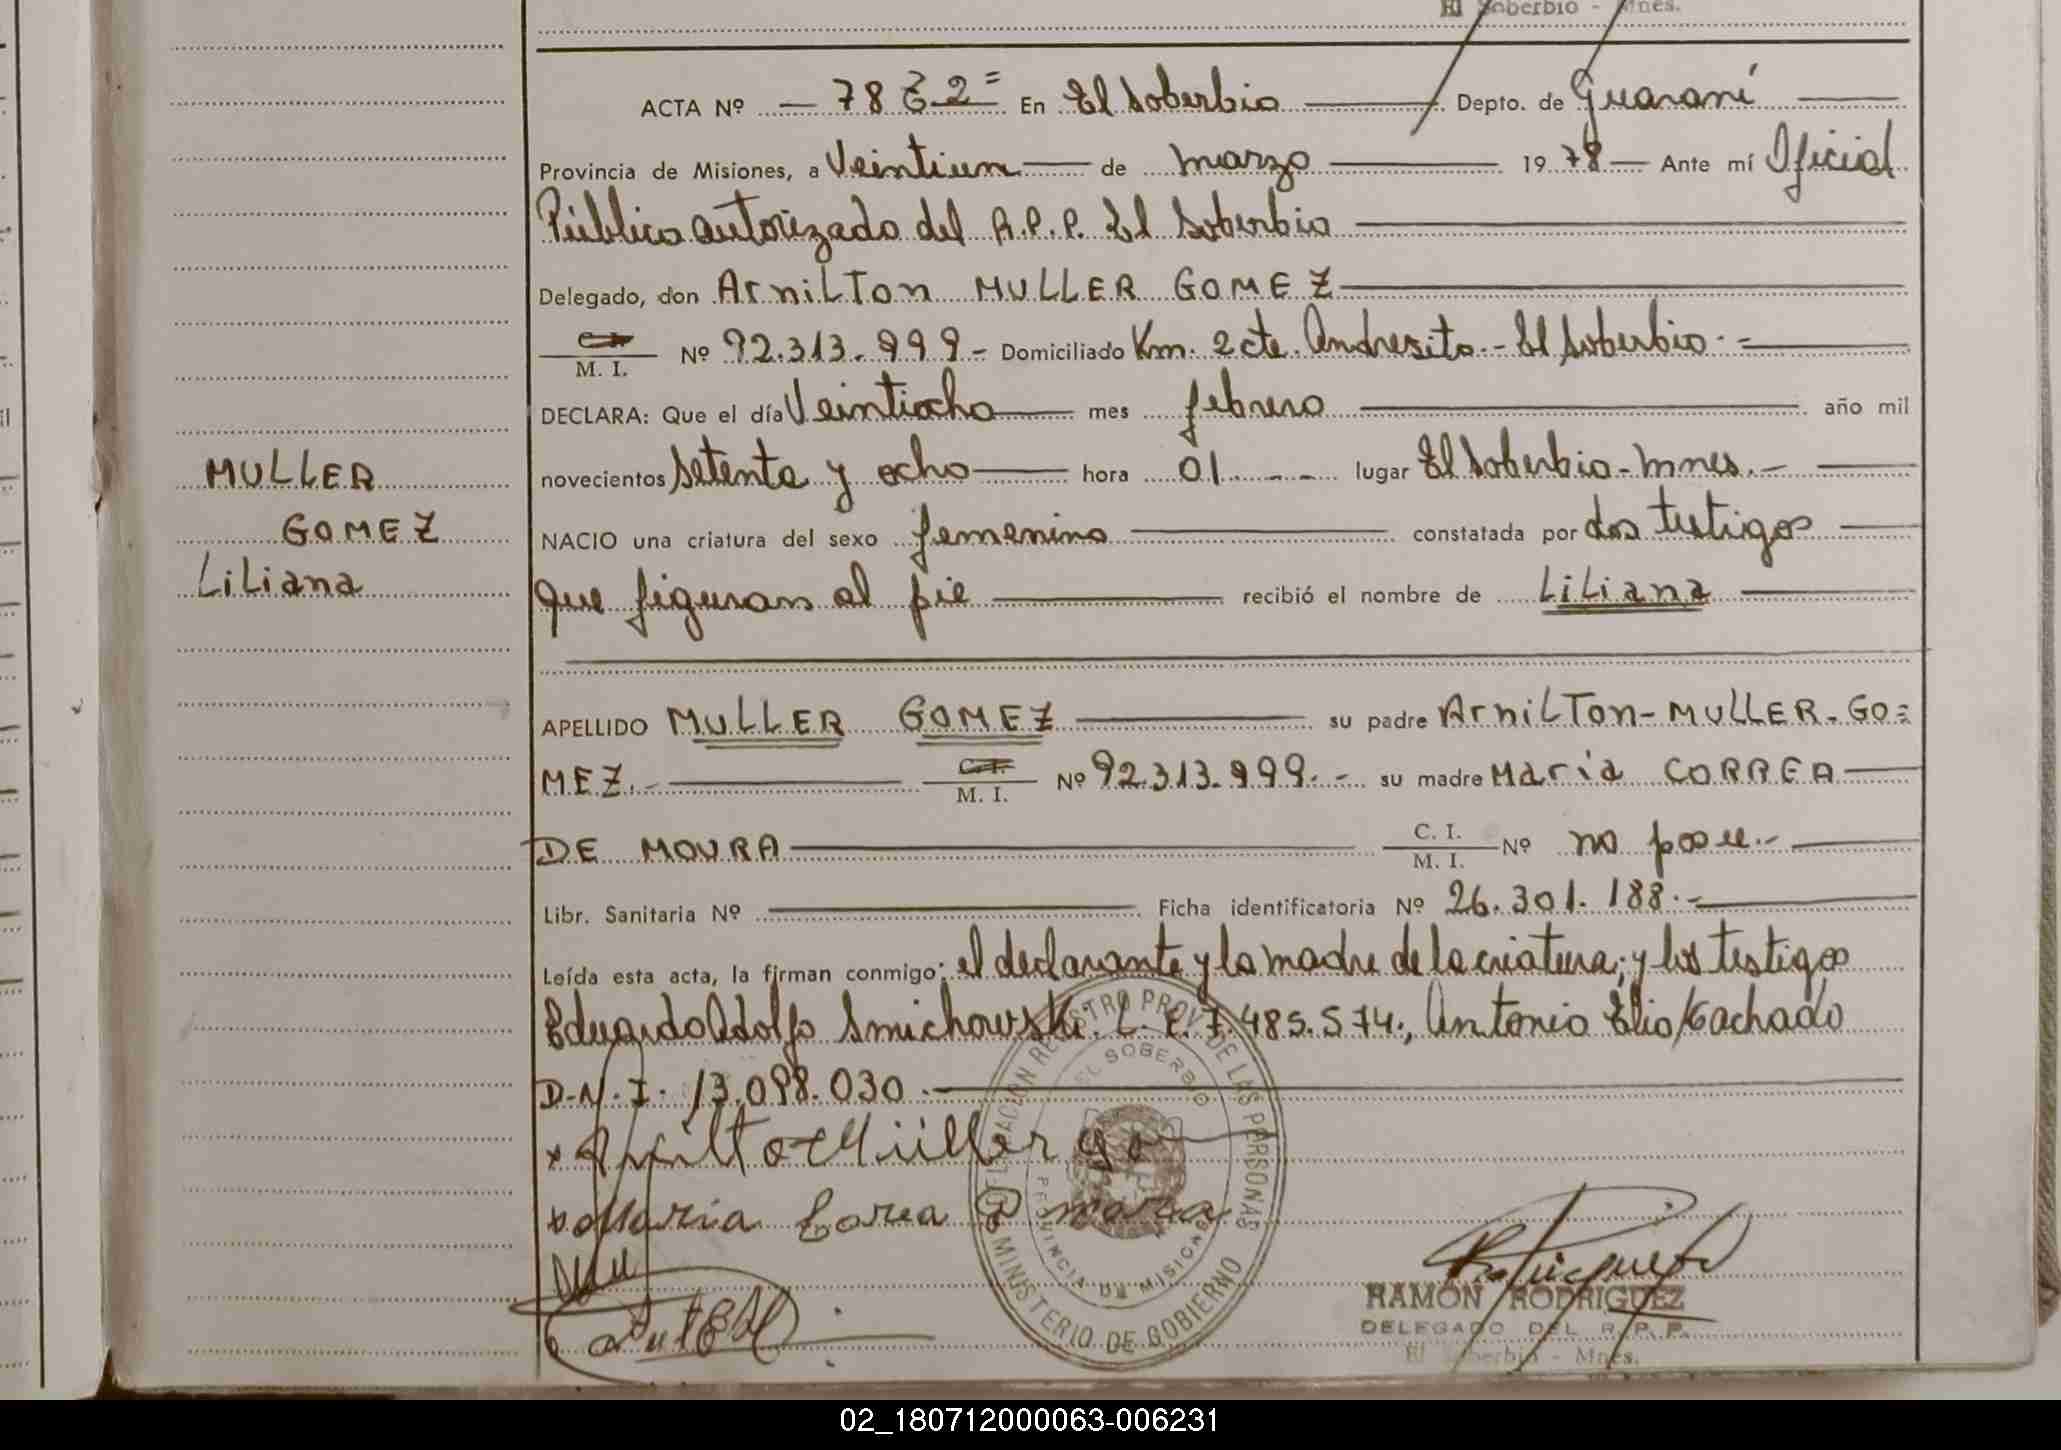 El Soberbio - Mnes.
ACTA Nº — 78 62 = En El Soberbio Depto. de Guaraní
Provincia de Misiones, a Veintiun de marzo 1978 Ante mí Oficial
Público autorizado del R.P.P. El Soberbio
Delegado, don ArniLTon MULLER GOMEZ
M. I. Nº 92.313.999.- Domiciliado Km. 2 cte. Andresito.- El Soberbio.-
DECLARA: Que el día Veintiocho mes febrero año mil
novecientos setenta y ocho hora 01 lugar El Soberbio - Mnes.-
MULLER
GOMEZ
LiLiana
NACIO una criatura del sexo femenino constatada por dos testigos
que figuran al pie recibió el nombre de LiLiana
APELLIDO MULLER GOMEZ su padre ArniLTon-MULLER-GO=
MEZ.- C.I. M. I. Nº 92.313.999.- su madre María CORREA
DE MOURA C. I. M. I. Nº no posee.-
Libr. Sanitaria Nº Ficha identificatoria Nº 26.301.188.-
Leída esta acta, la firman conmigo: el declarante y la madre de la criatura; y los testigos
Eduardo Adolfo Smichowski. L. E. 7.485.574., Antonio Elio Machado
D.N.I. 13.098.030.-
Müller go
x Maria Correa D moura
REGISTRO PROV. DE LAS PERSONAS
EL SOBERBIO
PROVINCIA DE MISIONES
MINISTERIO DE GOBIERNO
RAMÓN RODRIGUEZ
DELEGADO DEL R.P.P.
El Soberbio - Mnes.
02_180712000063-006231